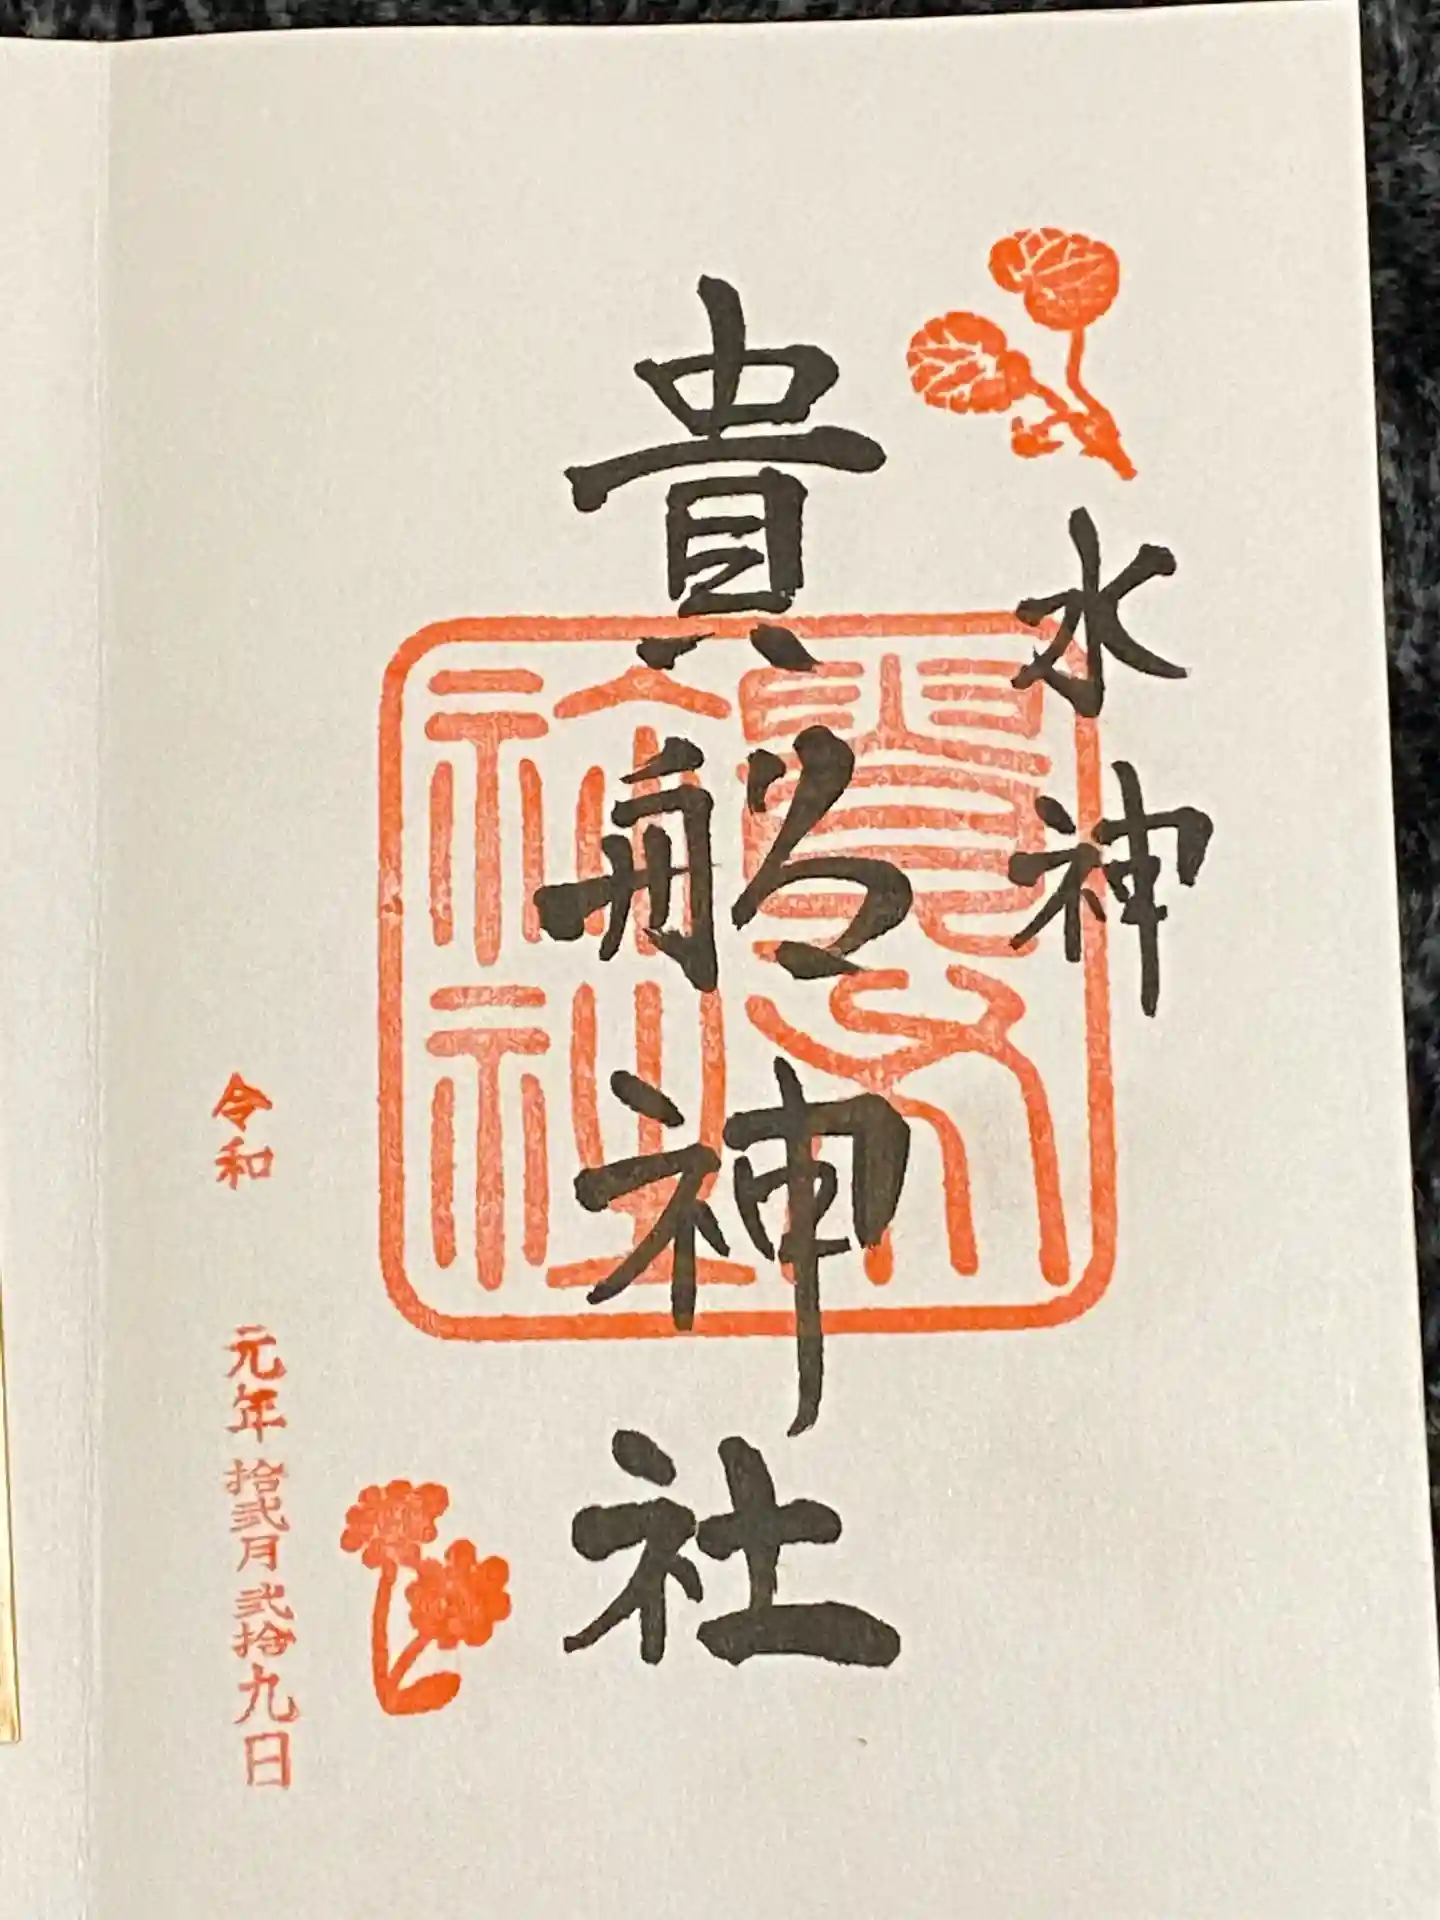 水神
貴船神社
令和 元年拾弐月弐拾九日